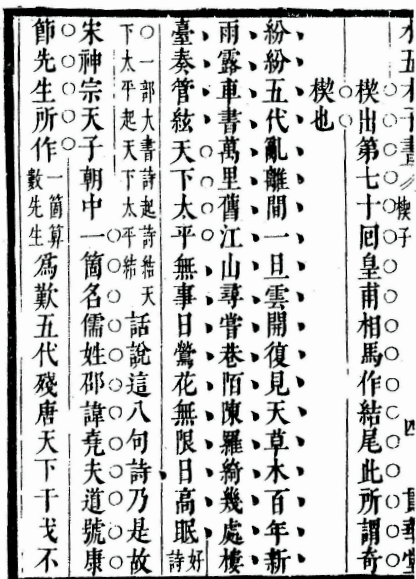 五才子書 楔子 四 貫華堂
楔出第七十回皇甫相馬作結尾此所謂奇
楔也
紛紛五代亂離間一旦雲開復見天草木百年新
雨露車書萬里舊江山尋嘗巷陌陳羅綺幾處樓
臺奏管絃天下太平無事日鶯花無限日高眠好詩
○一部大書詩起詩結天下太平起天下太平結話說這八句詩乃是故
宋神宗天子朝中一箇名儒姓邵諱堯夫道號康
節先生所作一箇算數先生爲歎五代殘唐天下干戈不